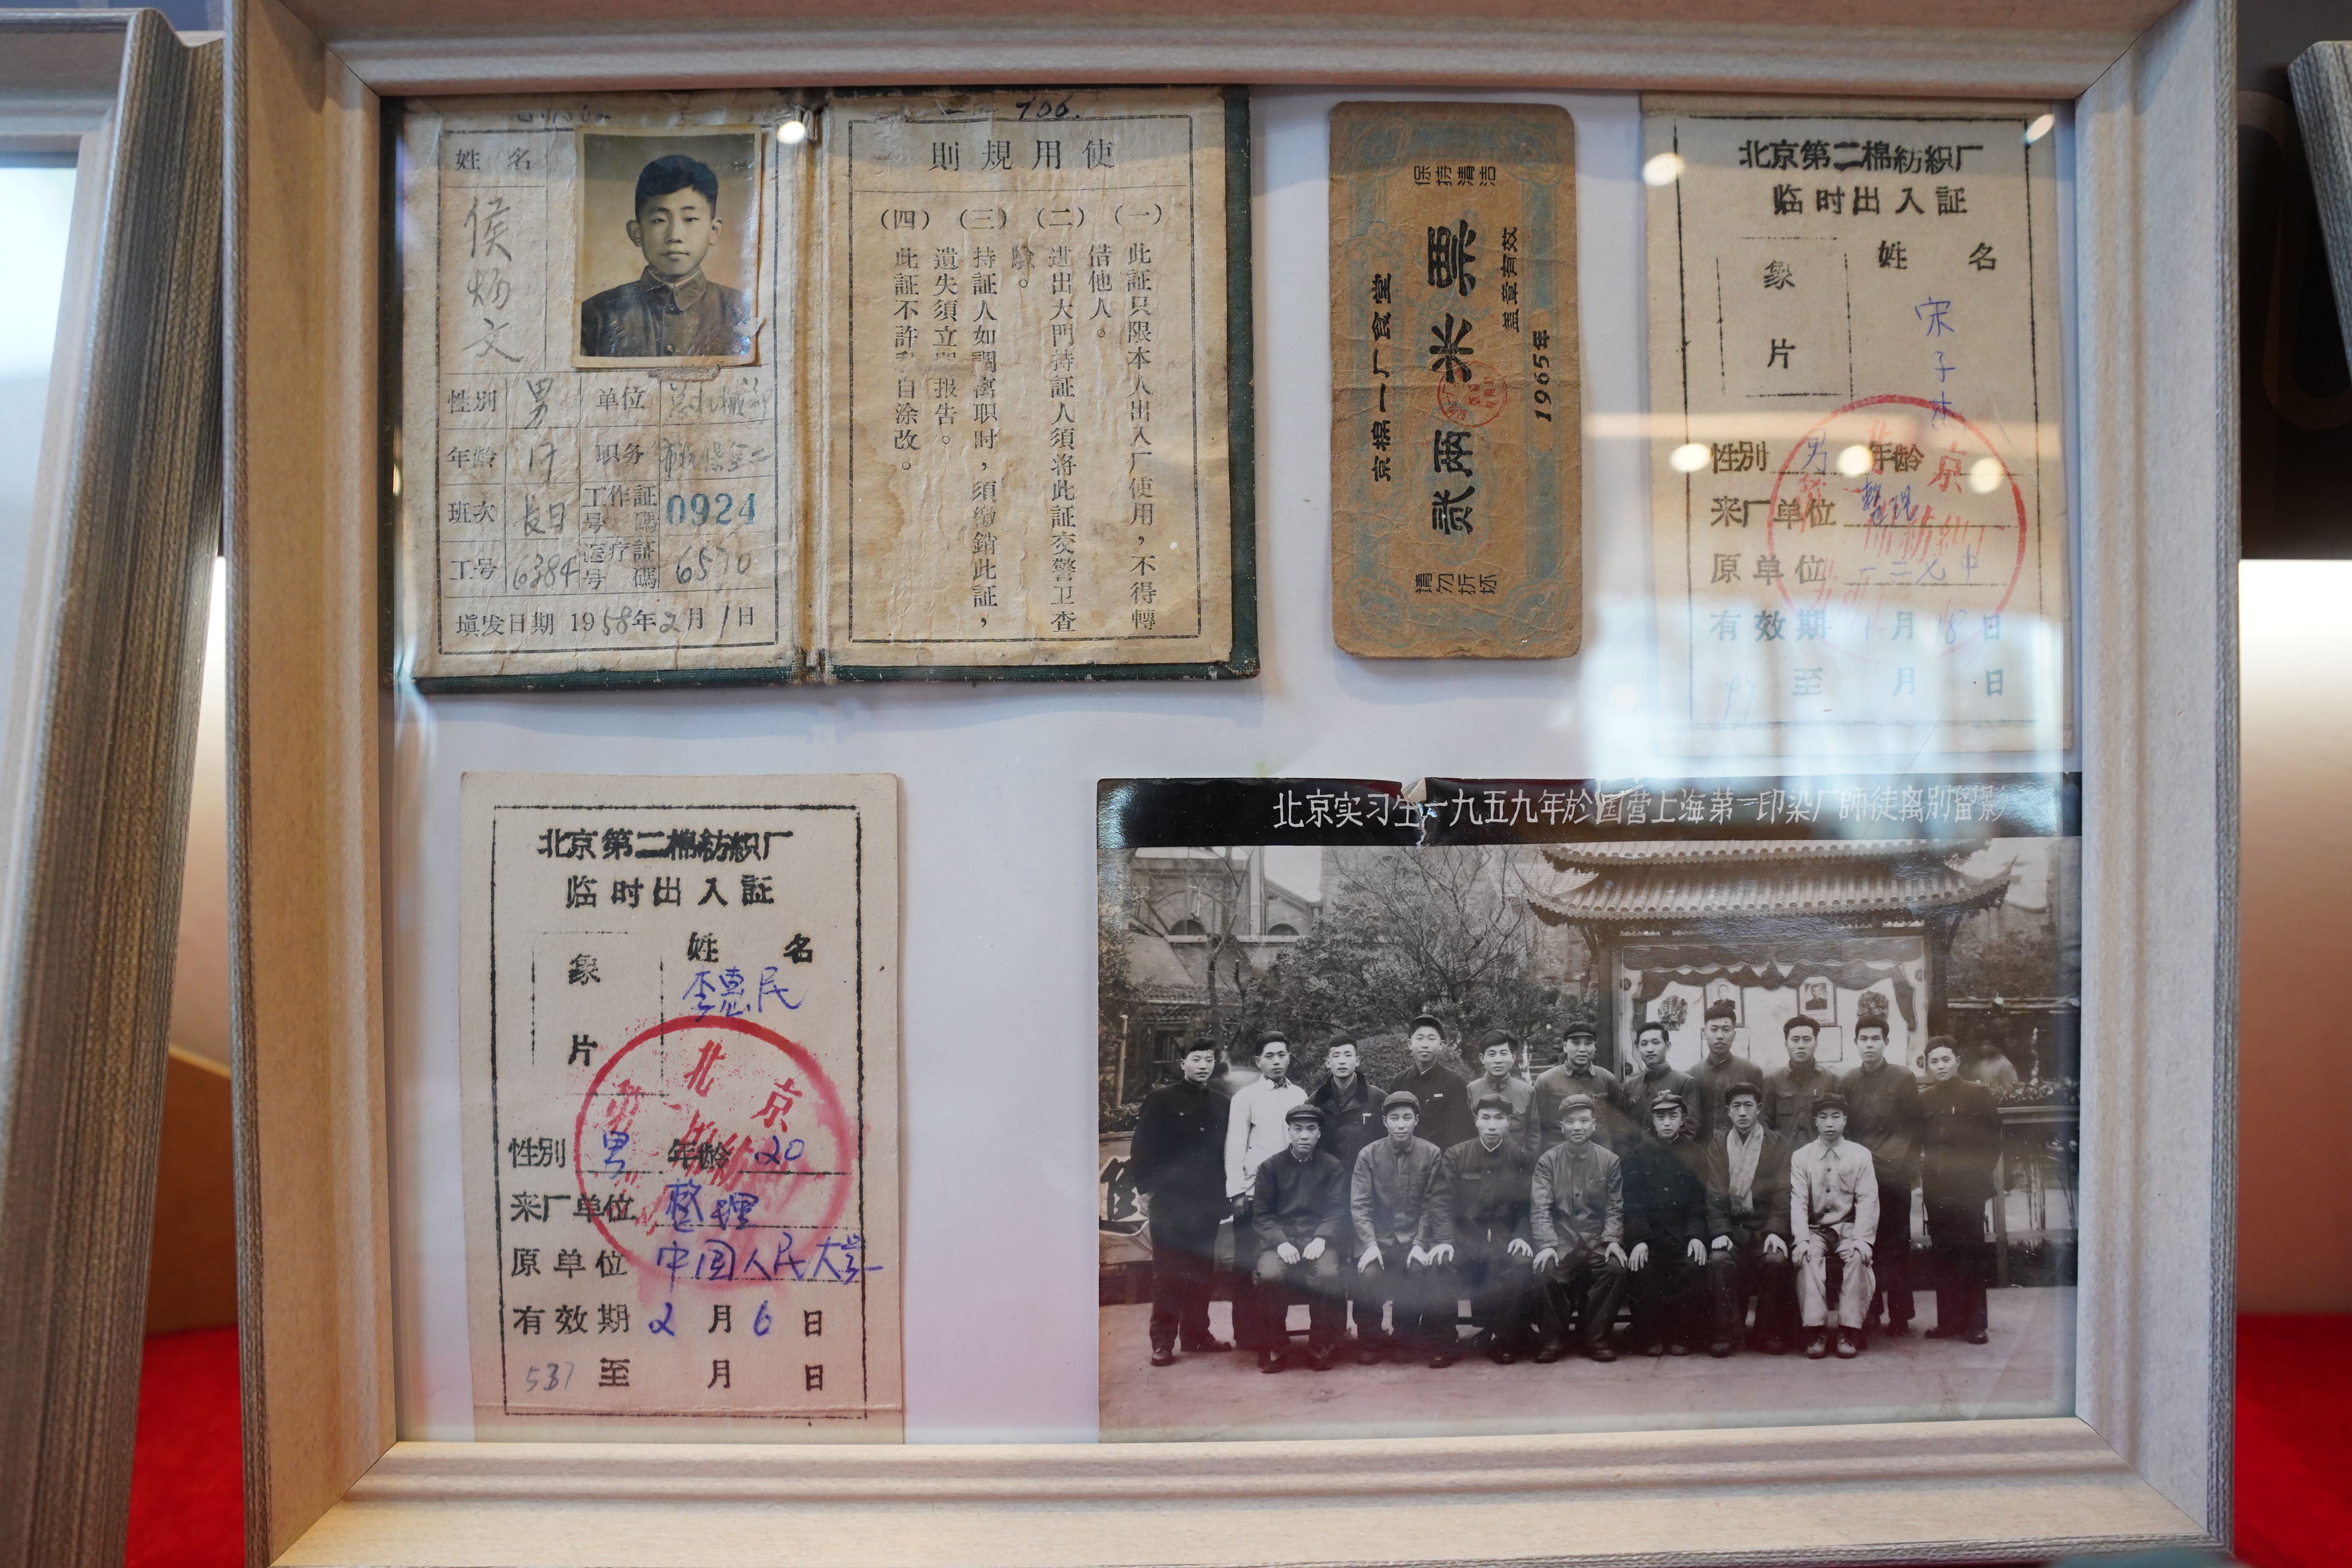 706.
姓名
侯炳文
性别 男 单位
年龄 17 职务
班次 長日 工作証号碼 0924
工号 6384 医疗証号碼 6570
填发日期 1958年2月1日
使用規則
(一) 此証只限本人出入厂使用，不得轉
借他人。
(二) 进出大門持証人須将此証交警卫查
驗。
(三) 持証人如調离职时，須繳銷此証，
遺失須立 报告。
(四) 此証不許 自涂改。
保持清洁
京棉一厂食堂
贰兩米票
盖章有效
1965年
请勿折坏
北京第二棉紡織厂
临时出入証
象片
姓名
宋子
性别 男 年龄
来厂单位 整理
原单位 一二七中
有效期 1月18日
97 至 月 日
北京
北京第二棉紡織厂
临时出入証
象片
姓名
李惠民
性别 男 年龄 20
来厂单位 整理
原单位 中国人民大学
有效期 2月6日
537 至 月 日
北京
北京实习生一九五九年於国营上海第一印染厂師徒离别留影